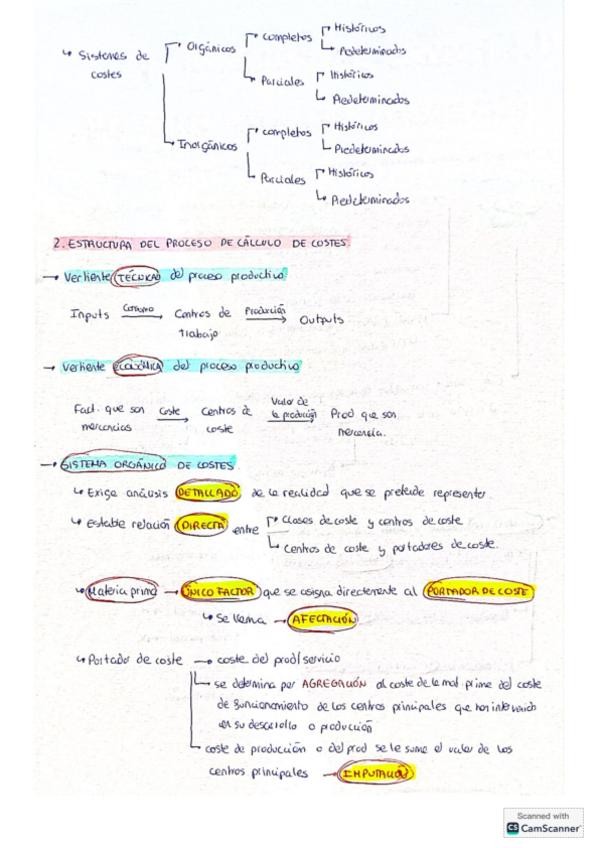 ↳ Sistemas de costes
Orgánicos
completos
Históricos
Predeterminados
Parciales
Históricos
Predeterminados
Inorgánicos
completos
Históricos
Predeterminados
Parciales
Históricos
Predeterminados
2. ESTRUCTURA DEL PROCESO DE CÁLCULO DE COSTES.
→ Vertiente TÉCNICA del proceso productivo
Inputs Consumo → Centros de trabajo Producción → Outputs
→ Vertiente ECONÓMICA del proceso productivo
Fact. que son mercancías Coste → Centros de coste Valor de la producción → Prod que son mercancía.
→ SISTEMA ORGÁNICO DE COSTES.
↳ Exige análisis DETALLADO de la realidad que se pretende representar.
↳ Estable relación DIRECTA entre
Clases de coste y centros de coste
Centros de coste y portadores de coste.
↳ Materia prima → ÚNICO FACTOR que se asigna directamente al PORTADOR DE COSTE
↳ Se llama → AFECTACIÓN
↳ Portador de coste → coste del prod/servicio
se determina por AGREGACIÓN al coste de la mat. prima del coste
de funcionamiento de los centros principales que han intervenido
en su desarrollo o producción
coste de producción o del prod se le suma el valor de los
centros principales → IMPUTACIÓN
Scanned with
CS CamScanner